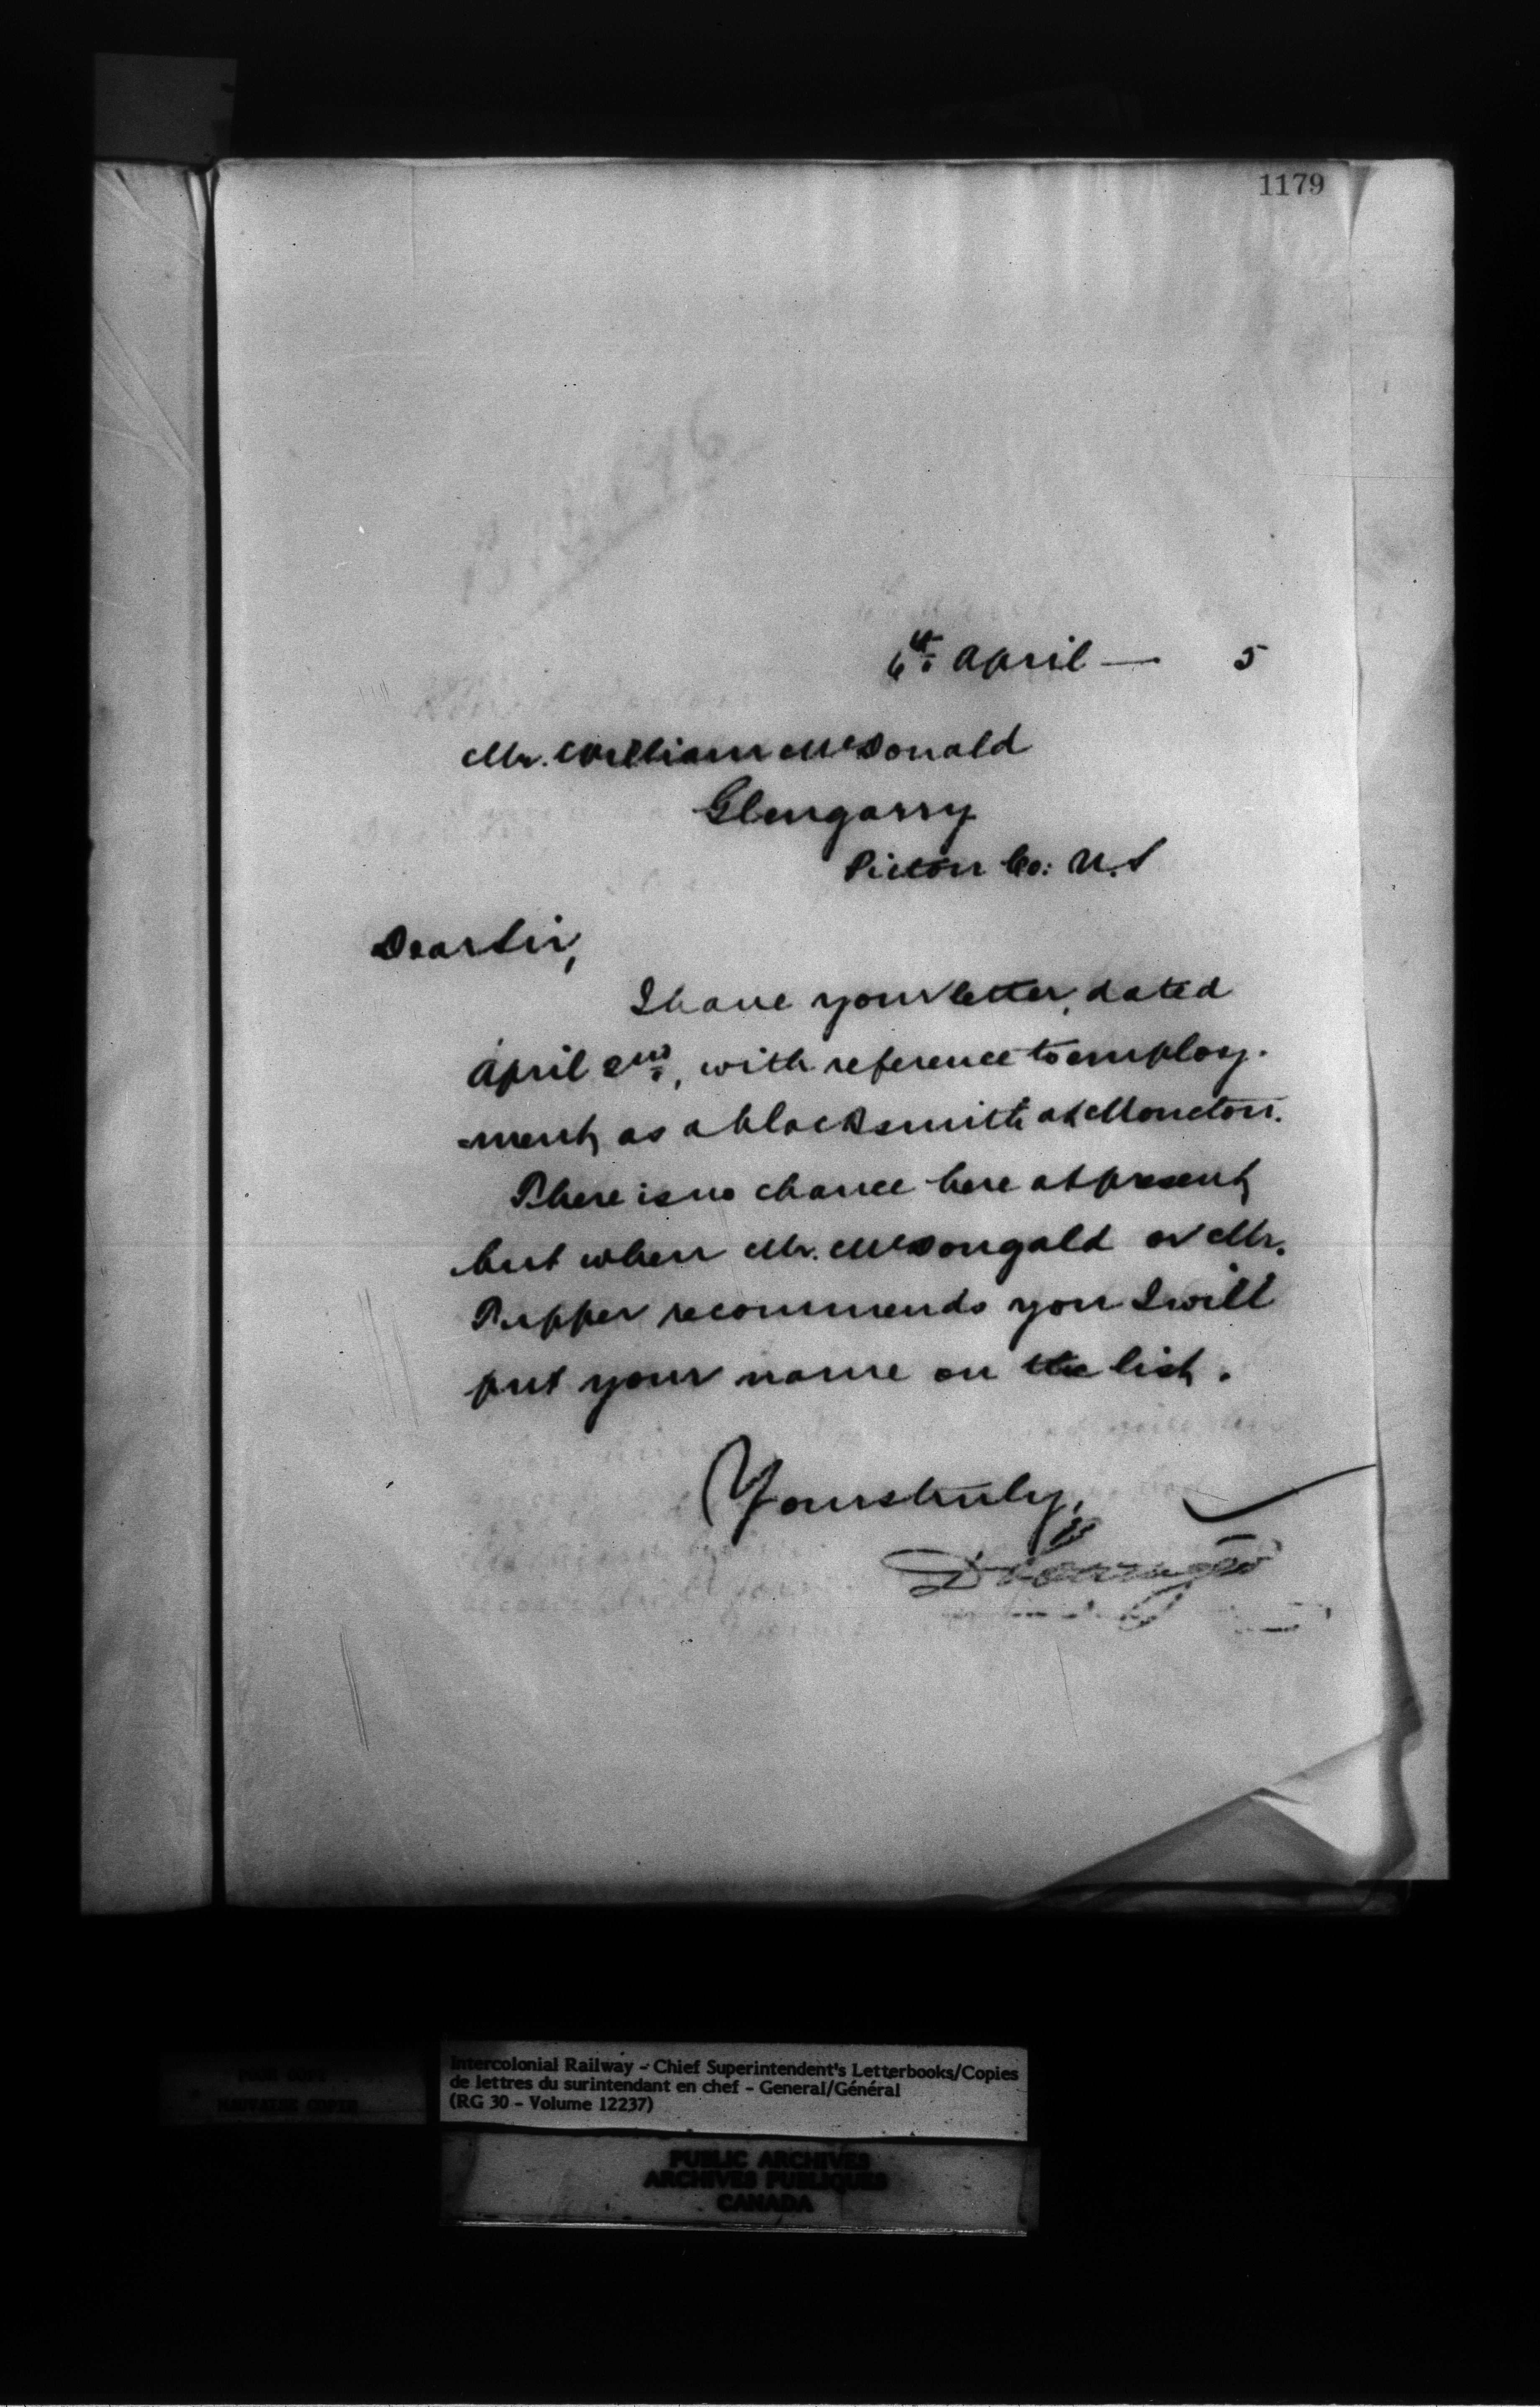 1179
6th April — 5
Mr. William McDonald
Glengarry
Pictou Co: N.S
Dear Sir,
I have your letter, dated
April 2nd, with reference to employ-
-ment, as a blacksmith at Moncton.
There is no chance here at present,
but when Mr. McDougald or Mr.
Tupper recommends you I will
put your name on the list.
Yours truly,
POOR COPY
MAUVAISE COPIE
Intercolonial Railway - Chief Superintendent's Letterbooks/Copies
de lettres du surintendant en chef - General/Général
(RG 30 - Volume 12237)
PUBLIC ARCHIVES
ARCHIVES PUBLIQUES
CANADA